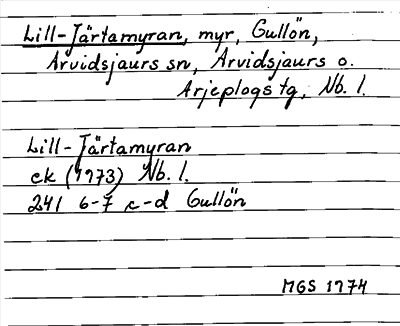 Lill-Järtamyran, myr, Gullön,
Arvidsjaurs sn, Arvidsjaurs o.
Arjeplogs tg, Nb. l.
Lill-Järtamyran
ek (1973) Nb. l.
241 6-7 c-d Gullön
MGS 1974